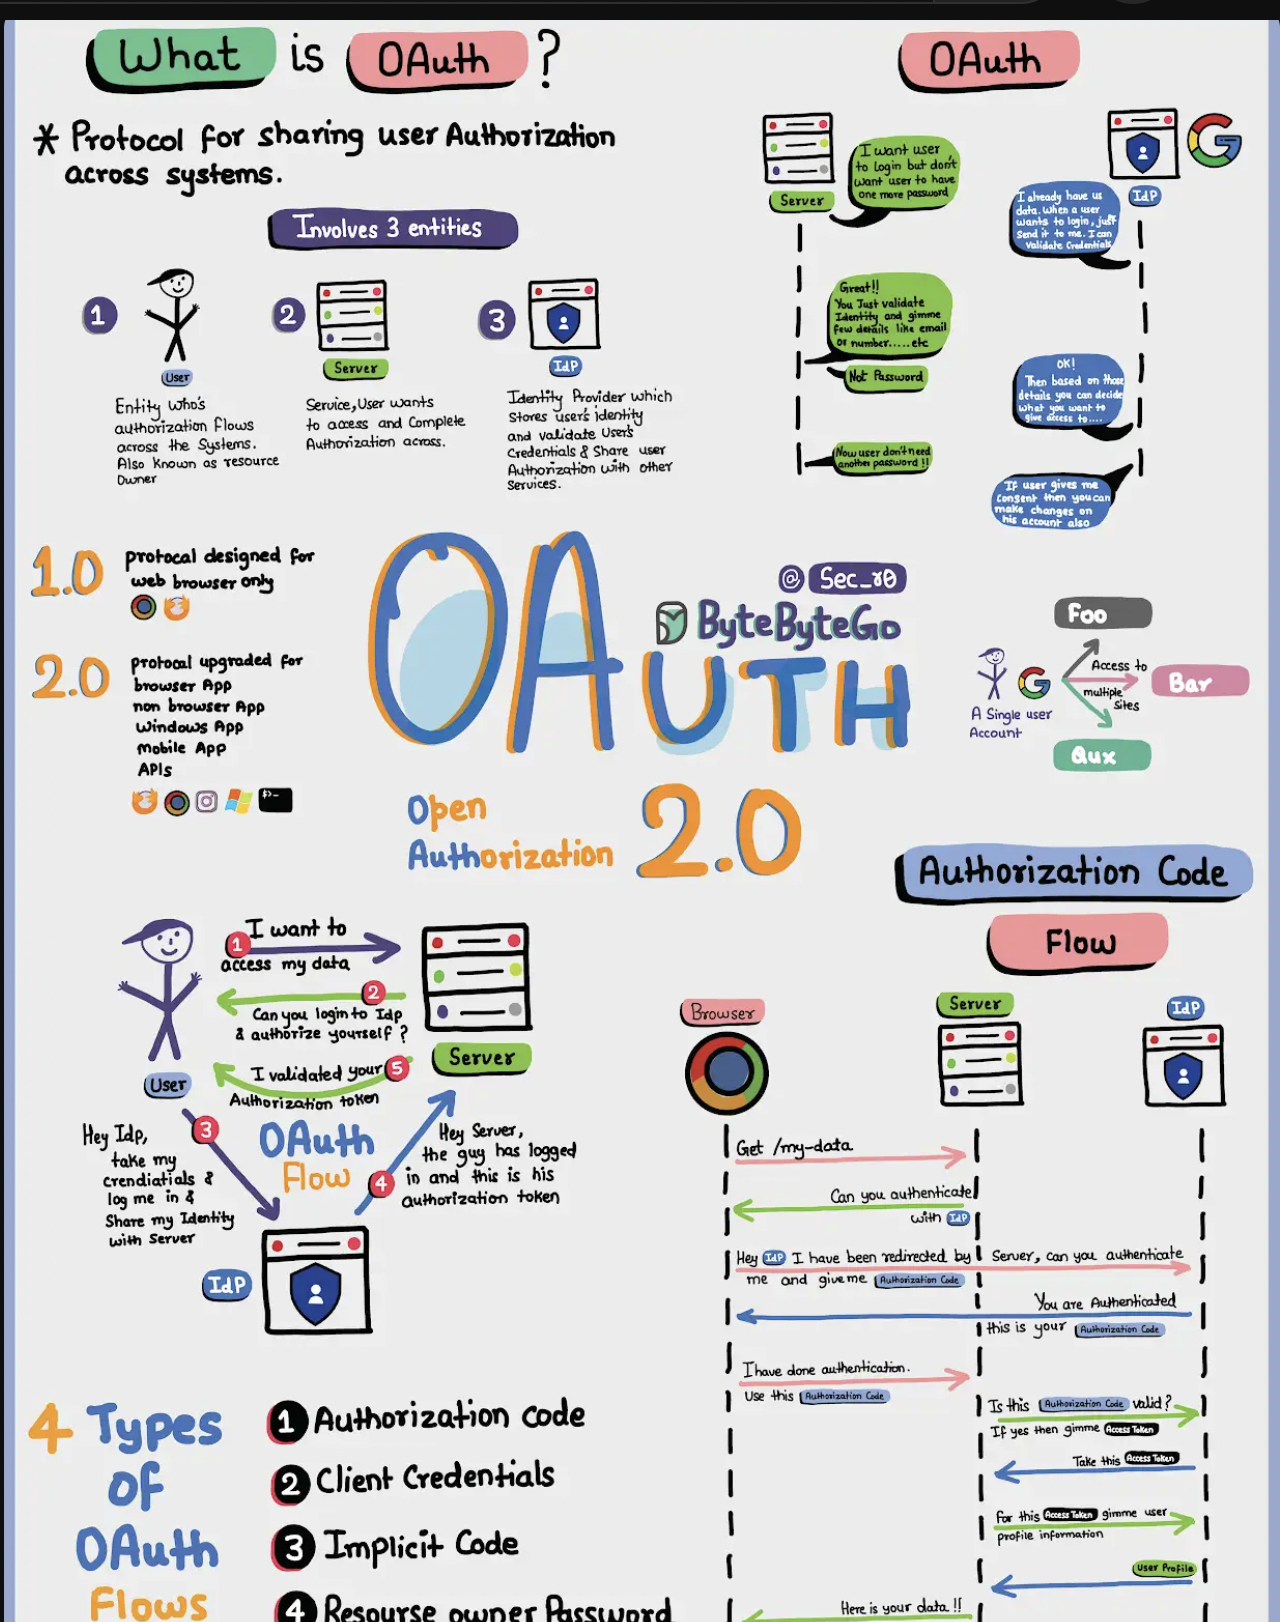 What is OAuth ?
* Protocol for sharing user Authorization
across systems.
Involves 3 entities
1
User
Entity Who's
authorization Flows
across the Systems.
Also Known as resource
Owner
2
Server
Service,User wants
to access and Complete
Authorization across.
3
IdP
Identity Provider which
Stores user's identity
and validate User's
Credentials & Share user
Authorization with other
Services.
OAuth
Server
IdP
I want user
to login but don't
want user to have
one more password
I already have us
data. When a user
wants to login, just
Send it to me. I can
Validate Credentials
Great!!
You Just validate
Identity and gimme
few details like email
or number.....etc
Not Password
OK!
Then based on those
details you can decide
what you want to
give access to....
Now user don't need
another password !!
If user gives me
Consent then you can
make changes on
his account also
1.0
protocal designed for
web browser only
2.0
protocal upgraded for
browser App
non browser App
Windows App
mobile App
APIs
$>-
OAUTH
@ Sec_r0
ByteByteGo
Open
Authorization
2.0
A Single user
Account
Access to
multiple
Sites
Foo
Bar
Qux
1
I want to
access my data
2
Can you login to Idp
& authorize yourself ?
5
I validated your
Authorization token
User
Server
3
Hey Idp,
take my
crendiatials &
log me in &
Share my Identity
with Server
OAuth
Flow
4
Hey Server,
the guy has logged
in and this is his
authorization token
IdP
4 Types
of
OAuth
Flows
1 Authorization code
2 Client Credentials
3 Implicit Code
4 Resourse owner Password
Authorization Code
Flow
Browser
Server
IdP
Get /my-data
Can you authenticate
with IdP
Hey IdP I have been redirected by Server, can you authenticate
me and give me Authorization Code
You are Authenticated
this is your Authorization Code
I have done authentication.
Use this Authorization Code
Is this Authorization Code valid?
If yes then gimme Access Token
Take this Access Token
For this Access Token gimme user
profile information
User Profile
Here is your data !!